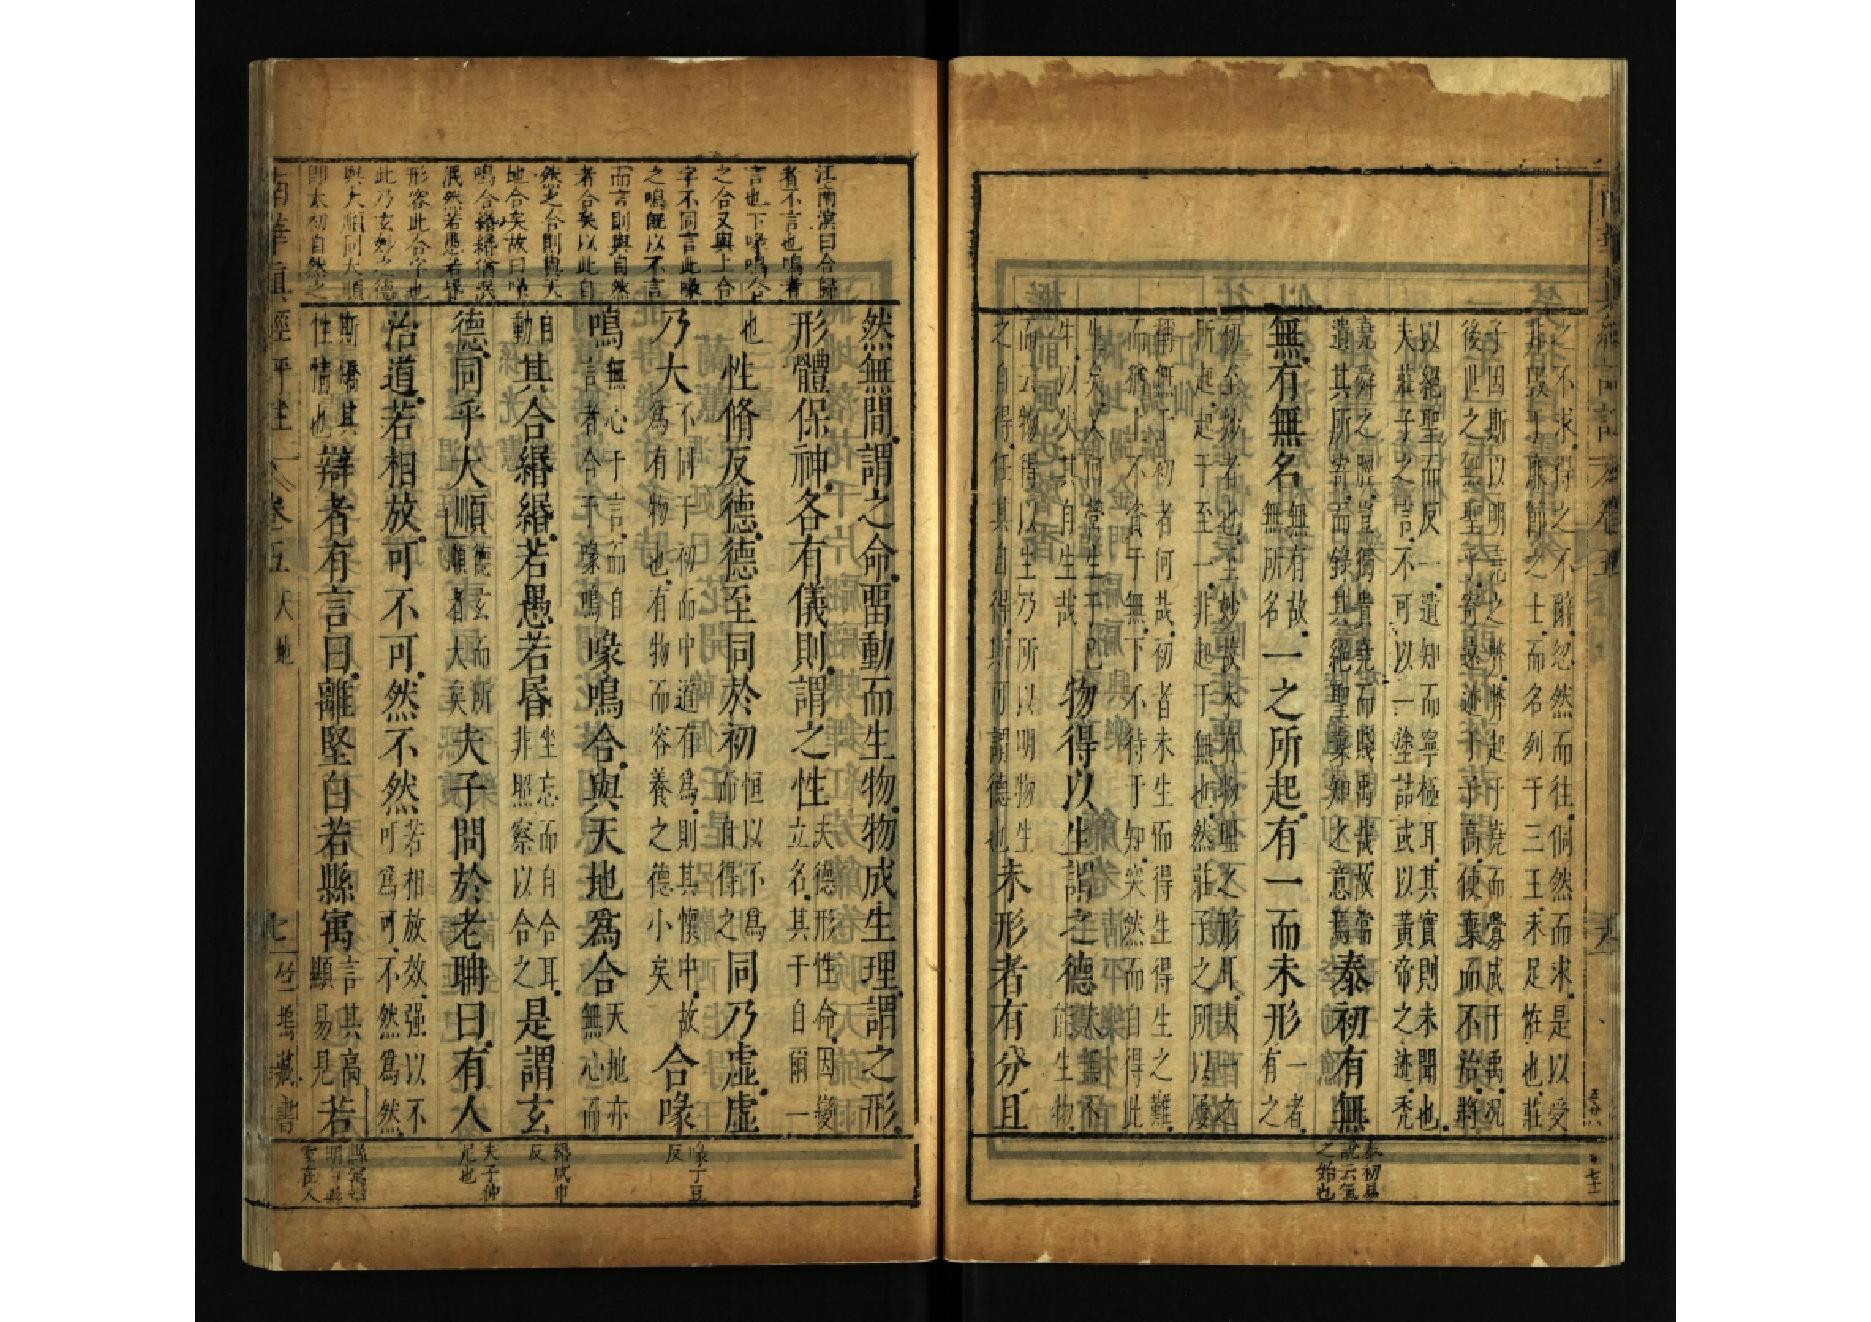 之不求得之不辭忽然而往侗然而來是以受
非毀于廉節之士而名列于三王未足怪也莊
子因斯以明堯之弊弊起于堯而釁成于禹況
後世之無聖乎寄遠迹于子高使棄而不治將
以絕聖而反一遺知而寧極耳其實則未聞也
夫莊子之言不可以一塗詰或以黃帝之迹禿
堯舜之脛豈獨貴堯而賤禹哉故當
遺其所寄而錄其絕聖棄知之意焉泰初有無
無有無名無有故無所名一之所起有一而未形一者有之
初至妙者也至妙故未有物理之形耳夫一之
所起起于至一非起于無也然莊子之所以屢
稱無于初者何哉初者未生而得生得生之難
而猶上不資于無下不待于知突然而自得此
生矣又何營生于已生以失其自生哉物得以生謂之德夫無不能生物
而云物得以生乃所以明物生
之自得任其自得斯可謂德也未形者有分且
泰初易
說云氣
之始也
江南濱曰合歸
者不言也鳴者
言也下喙鳴合
之合又與上合
字不同言此喙
之鳴既以不言
而言則與自然
者合矣以此自
然之合則與天
地合矣故曰喙
鳴合緡緡猶泯
泯然若愚若昬
形容此合字也
此乃玄妙之德
與大順同大順
即太初自然之
然無間謂之命留動而生物物成生理謂之形
形體保神各有儀則謂之性夫德形性命因變立名其于自爾一
也性脩反德德至同於初恒以不為而自得之同乃虛虛
乃大不同于初而中道有為則其懷中故為有物也有物而容養之德小矣合喙
鳴無心于言而自言者合于喙鳴喙鳴合與天地為合天地亦無心而
自動其合緡緡若愚若昬坐忘而自合耳非照察以合之是謂玄
德同乎大順德玄而所順者大矣夫子問於老聃曰有人
治道若相放可不可然不然若相放效强以不可為可不然為然
斯矯其性情也辯者有言曰離堅白若縣㝢言其高顯易見若
喙丁豆
反
緡武巾
反
夫子仲
尼也
南華真經評註
卷五
天地
七
竹塢藏書